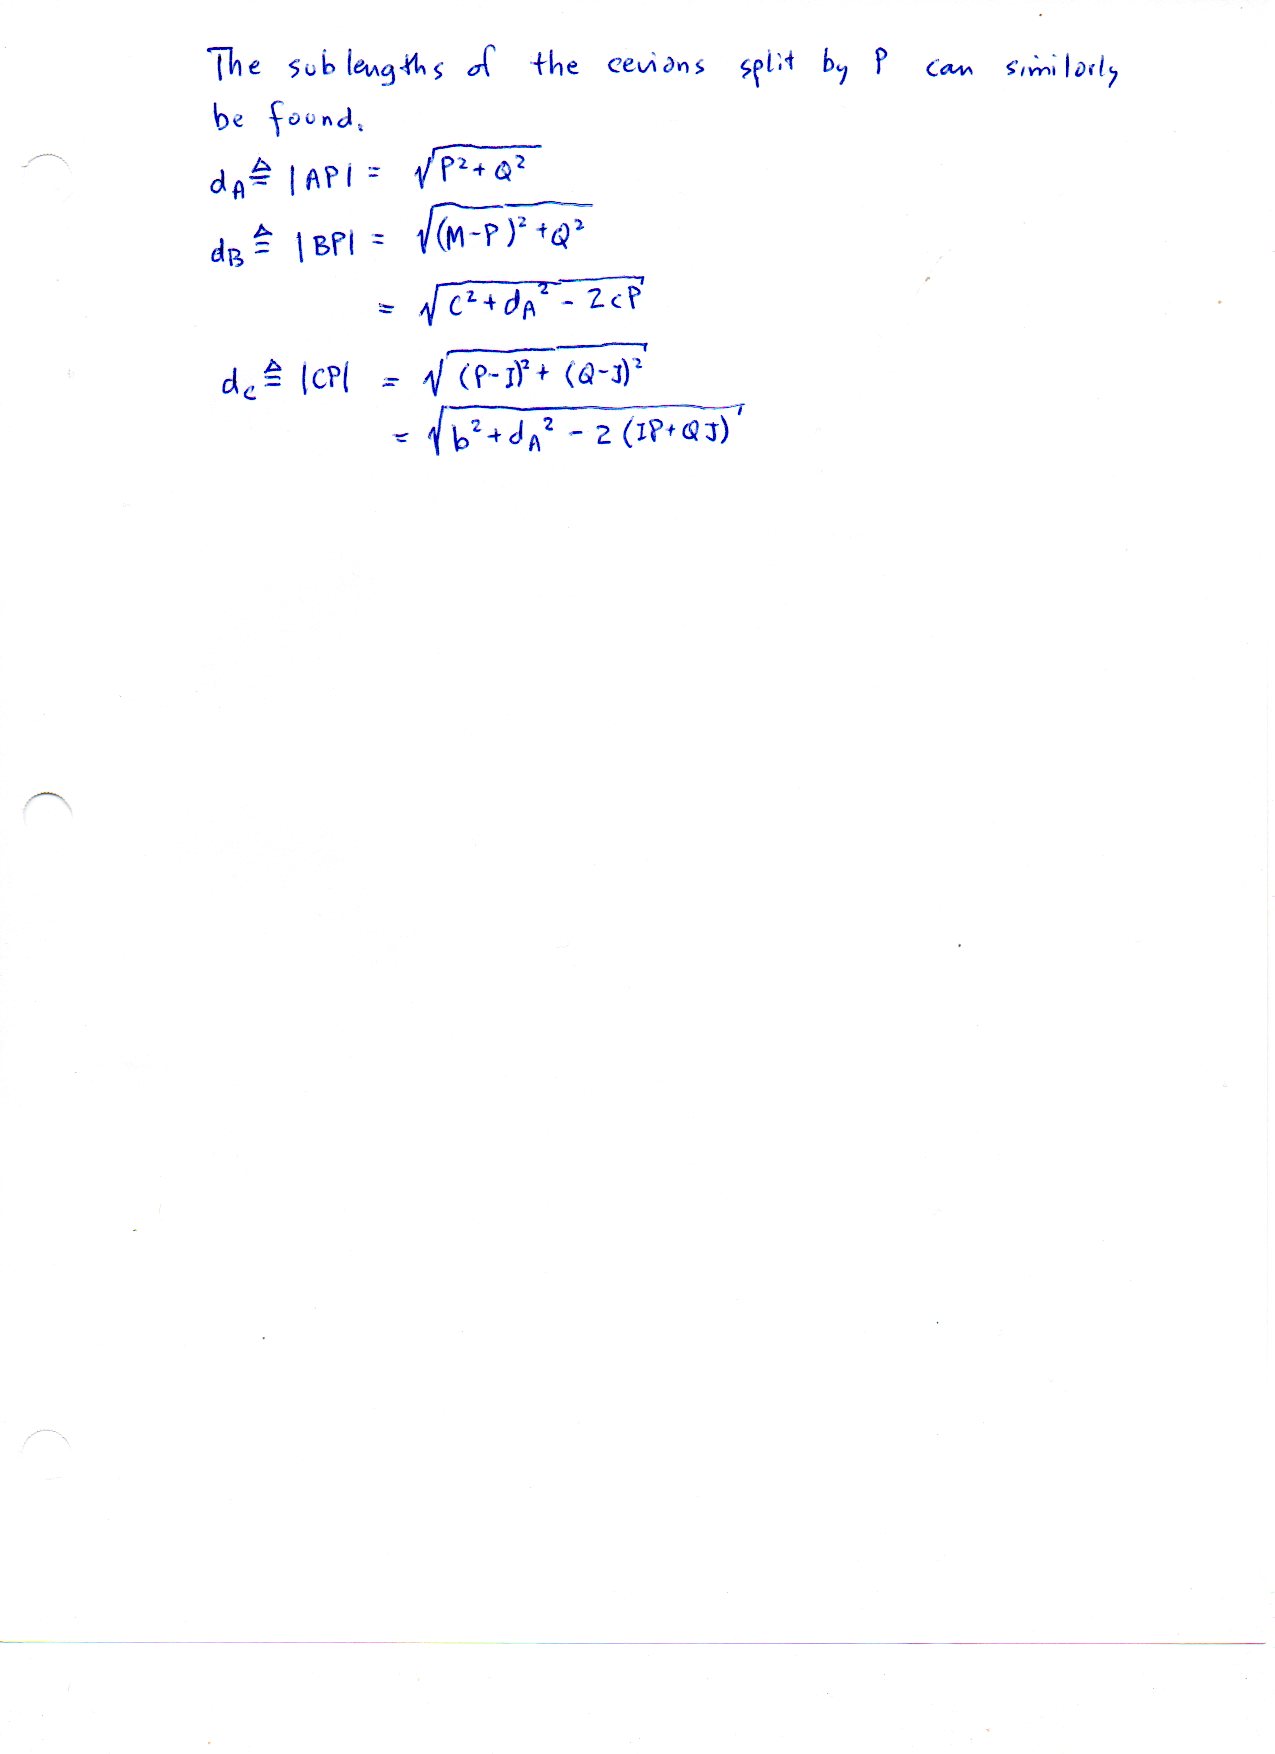 The sublengths of the cevians split by P can similarly
be found.
d_A ≜ |AP| = √(P² + Q²)
d_B ≜ |BP| = √((M-P)² + Q²)
= √(c² + d_A² - 2cP)
d_C ≜ |CP| = √((P-I)² + (Q-J)²)
= √(b² + d_A² - 2(IP+QJ))